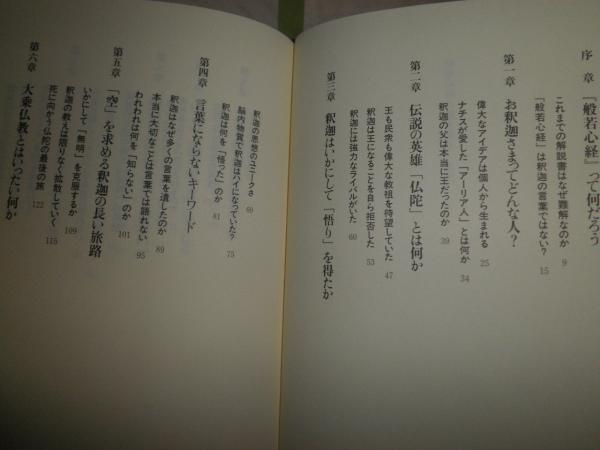 序章 『般若心経』って何だろう
これまでの解説書はなぜ難解なのか 9
『般若心経』は釈迦の言葉ではない? 15
第一章 お釈迦さまってどんな人?
偉大なアイデアは個人から生まれる 25
ナチスが愛した「アーリア人」とは何か 34
釈迦の父は本当に王だったのか 39
第二章 伝説の英雄「仏陀」とは何か
王も民衆も偉大な教祖を待望していた 47
釈迦は王になることを自ら拒否した 53
釈迦には強力なライバルがいた 60
第三章 釈迦はいかにして「悟り」を得たか
釈迦の思想のユニークさ 69
脳内物質で釈迦はハイになっていた? 75
釈迦は何を「悟った」のか 81
第四章 言葉にならないキーワード
釈迦はなぜ多くの言葉を遺したのか 89
本当に大切なことは言葉では語れない 95
われわれは何を「知らない」のか 101
第五章 「空」を求める釈迦の長い旅路
いかにして「無明」を克服するか 109
釈迦の教えは限りなく拡散していく 115
死に向かう仏陀の最後の旅 122
第六章 大乗仏教とはいったい何か